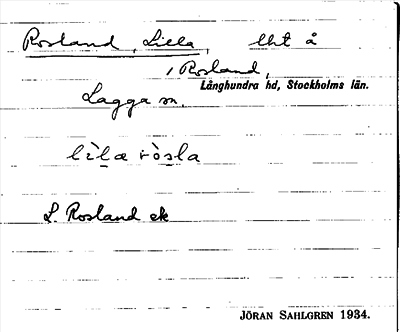 Rosland, Lilla, lht å
, Rosland,
Långhundra hd, Stockholms län.
Lagga sn.
lìla ròsla
L Rosland ek
JÖRAN SAHLGREN 1934.